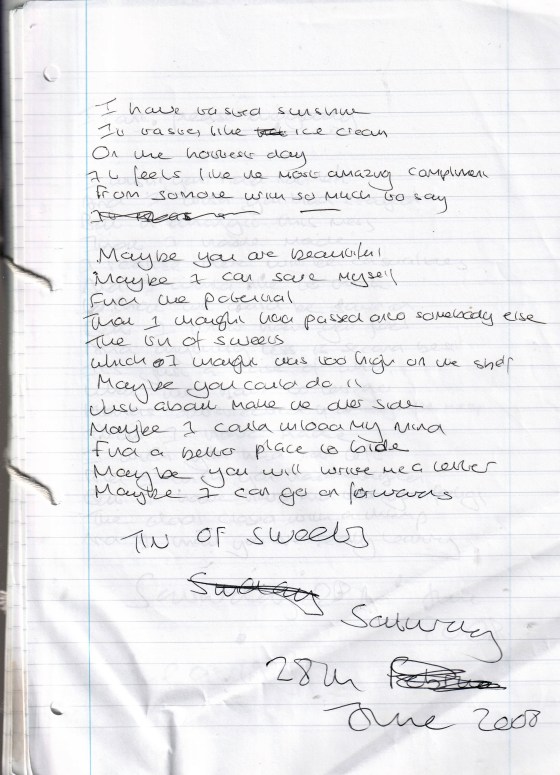 I have tasted sunshine
It tastes like ice cream
On the hottest day
It feels like the most amazing compliment
From someone with so much to say
Maybe you are beautiful
Maybe I can save myself
Find the potential
That I thought had passed onto somebody else
The tin of sweets
Which I thought was too high on the shelf
Maybe you could do it
Just about make the other side
Maybe I could unload my mind
Find a better place to hide
Maybe you will write me a letter
Maybe I can go on forwards
TIN OF SWEETS
Sunday
Saturday
28th
June 2008